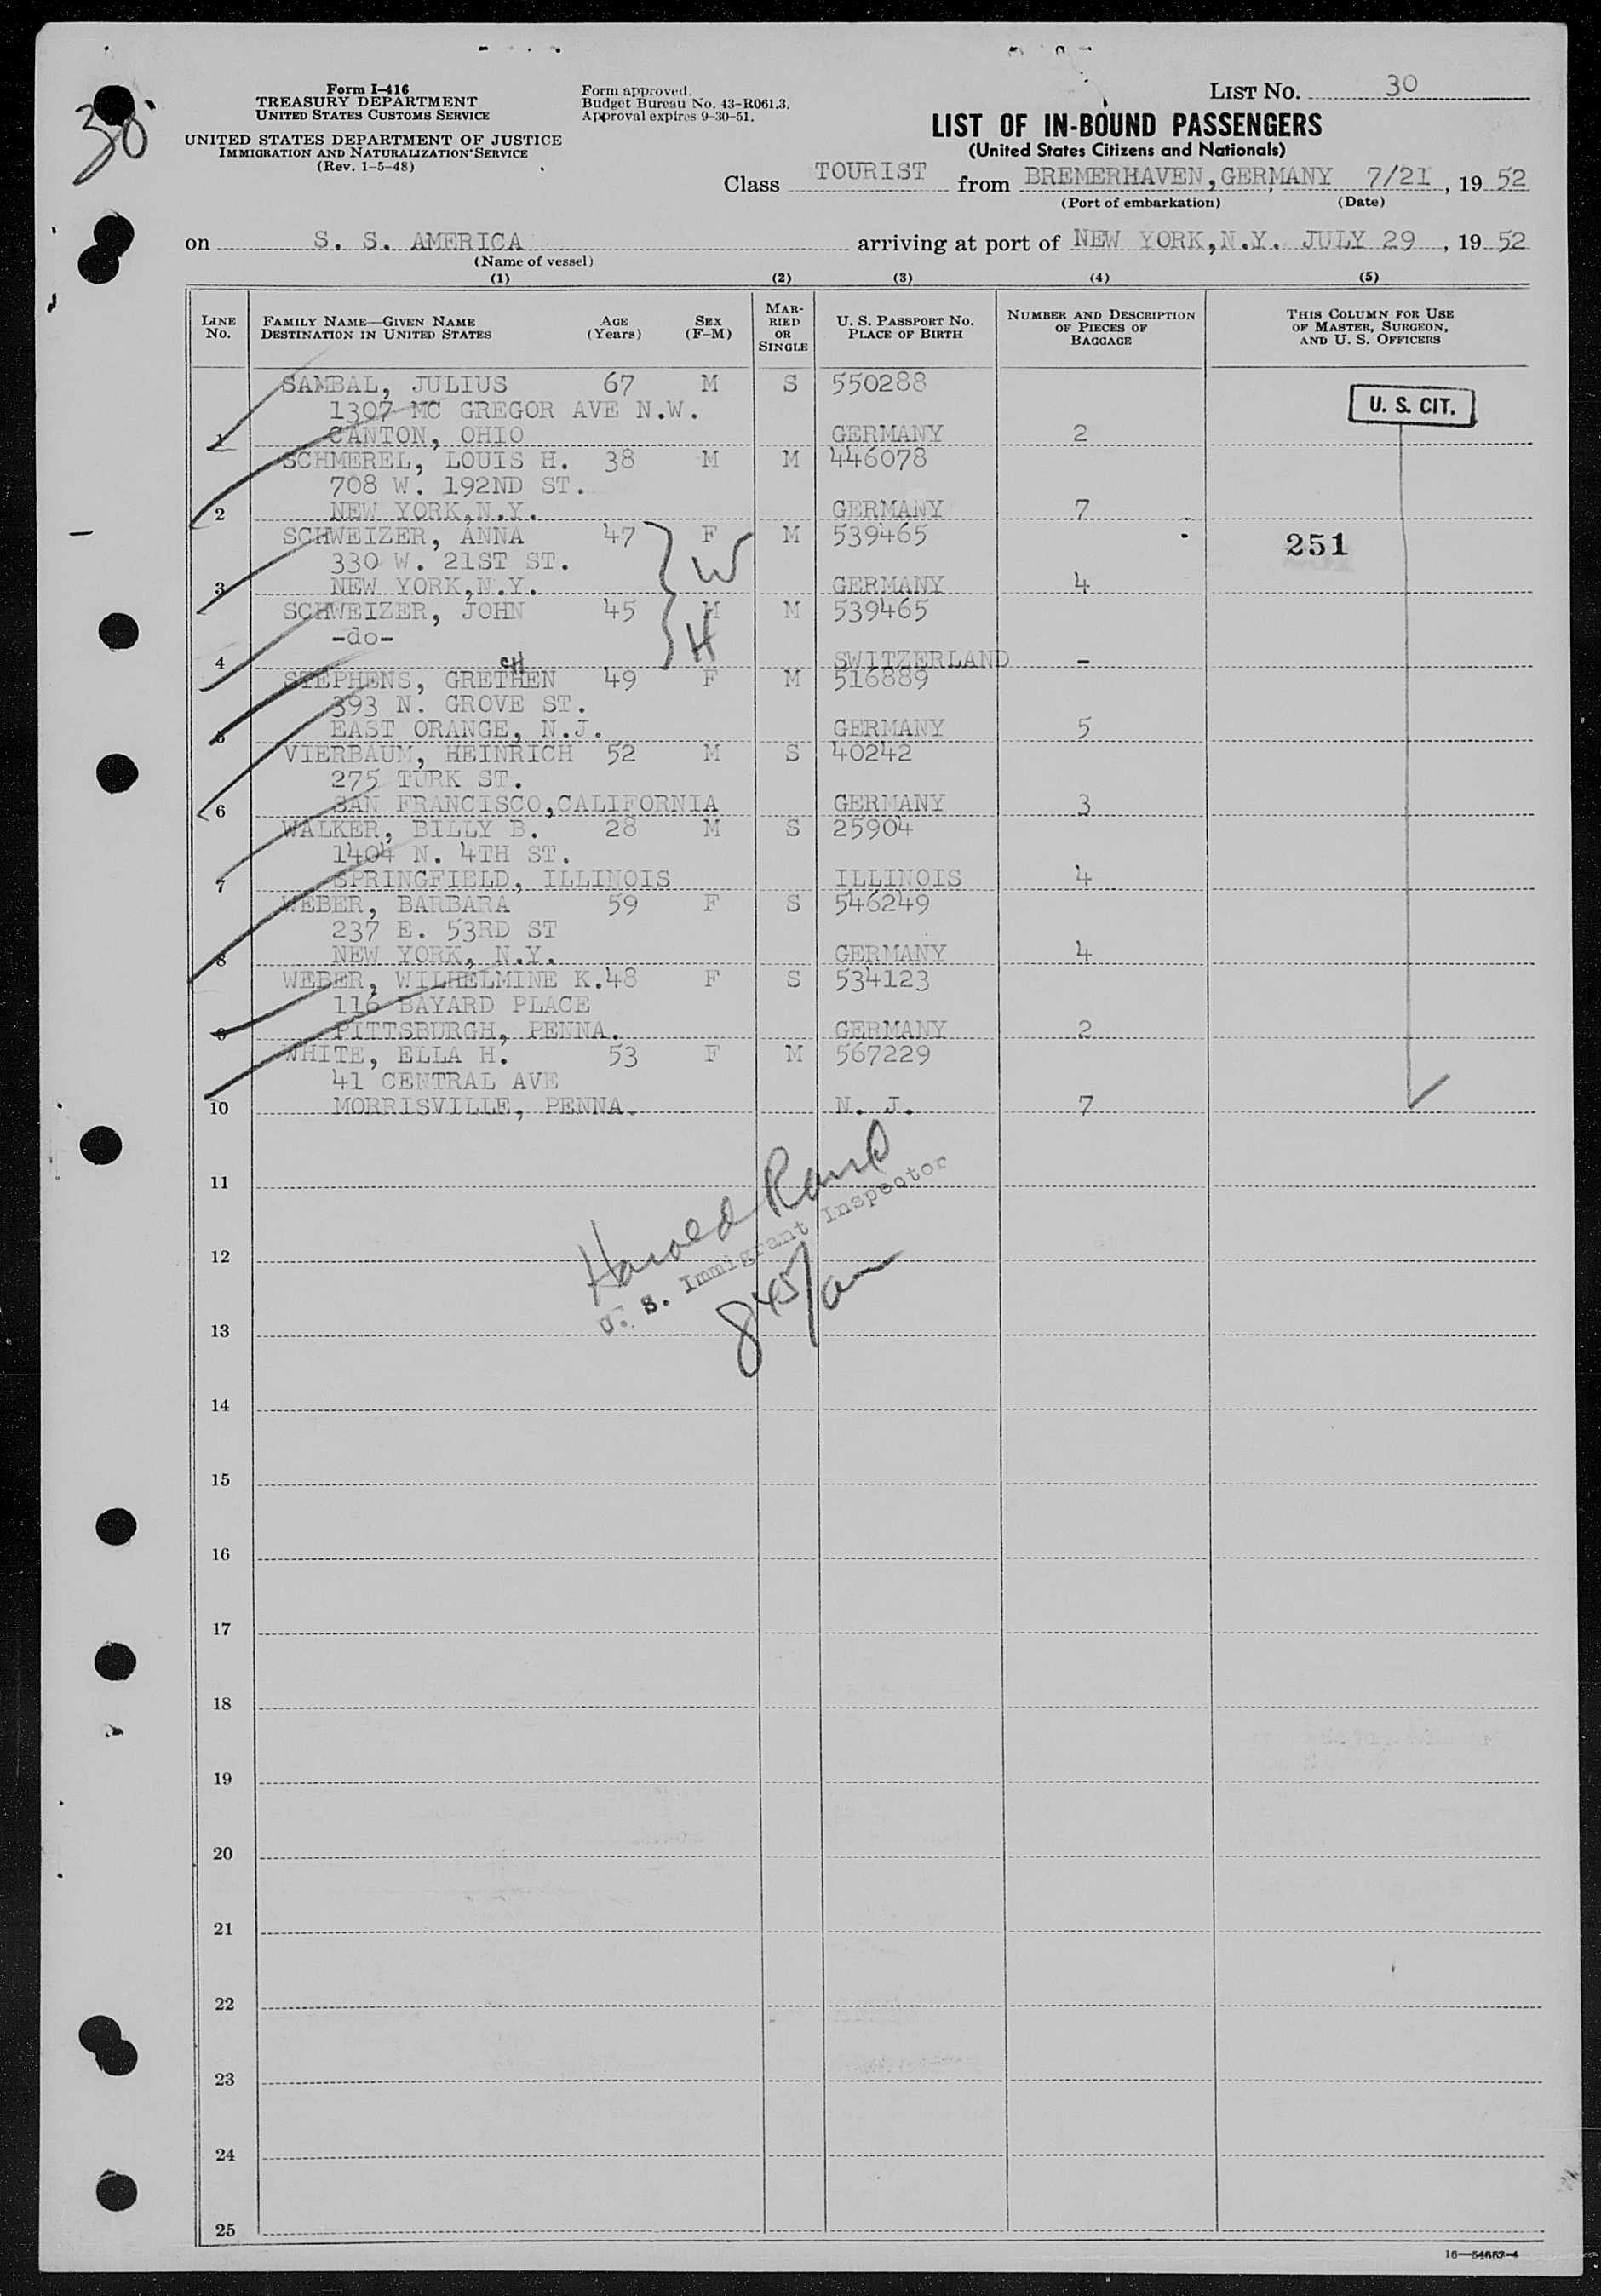 30
Form I-416
TREASURY DEPARTMENT
UNITED STATES CUSTOMS SERVICE
UNITED STATES DEPARTMENT OF JUSTICE
IMMIGRATION AND NATURALIZATION SERVICE
(Rev. 1-5-48)
Form approved.
Budget Bureau No. 43-R061.3.
Approval expires 9-30-51.
LIST NO. 30
LIST OF IN-BOUND PASSENGERS
(United States Citizens and Nationals)
Class TOURIST from BREMERHAVEN, GERMANY 7/21, 19 52
(Port of embarkation) (Date)
on S. S. AMERICA arriving at port of NEW YORK, N.Y. JULY 29, 19 52
(Name of vessel)
(1) (2) (3) (4) (5)
LINE NO. FAMILY NAME—GIVEN NAME DESTINATION IN UNITED STATES AGE (Years) SEX (F-M) MARRIED OR SINGLE U. S. PASSPORT NO. PLACE OF BIRTH NUMBER AND DESCRIPTION OF PIECES OF BAGGAGE THIS COLUMN FOR USE OF MASTER, SURGEON, AND U. S. OFFICERS
SAMBAL, JULIUS 67 M S 550288
1307 MC GREGOR AVE N.W. U. S. CIT.
1 CANTON, OHIO GERMANY 2
SCHMEREL, LOUIS H. 38 M M 446078
708 W. 192ND ST.
2 NEW YORK, N.Y. GERMANY 7
SCHWEIZER, ANNA 47 F M 539465
330 W. 21ST ST. W 251
3 NEW YORK, N.Y. GERMANY 4
SCHWEIZER, JOHN 45 M M 539465
-do- H
4 SWITZERLAND -
CH
STEPHENS, GRETHEN 49 F M 516889
393 N. GROVE ST.
5 EAST ORANGE, N.J. GERMANY 5
VIERBAUM, HEINRICH 52 M S 40242
275 TURK ST.
6 SAN FRANCISCO, CALIFORNIA GERMANY 3
WALKER, BILLY B. 28 M S 25904
1404 N. 4TH ST.
7 SPRINGFIELD, ILLINOIS ILLINOIS 4
WEBER, BARBARA 59 F S 546249
237 E. 53RD ST
8 NEW YORK, N.Y. GERMANY 4
WEBER, WILHELMINE K. 48 F S 534123
116 BAYARD PLACE
9 PITTSBURGH, PENNA. GERMANY 2
WHITE, ELLA H. 53 F M 567229
41 CENTRAL AVE
10 MORRISVILLE, PENNA. N. J. 7
11
Harold
U. S. Immigrant Inspector
12
845/am
13
14
15
16
17
18
19
20
21
22
23
24
25